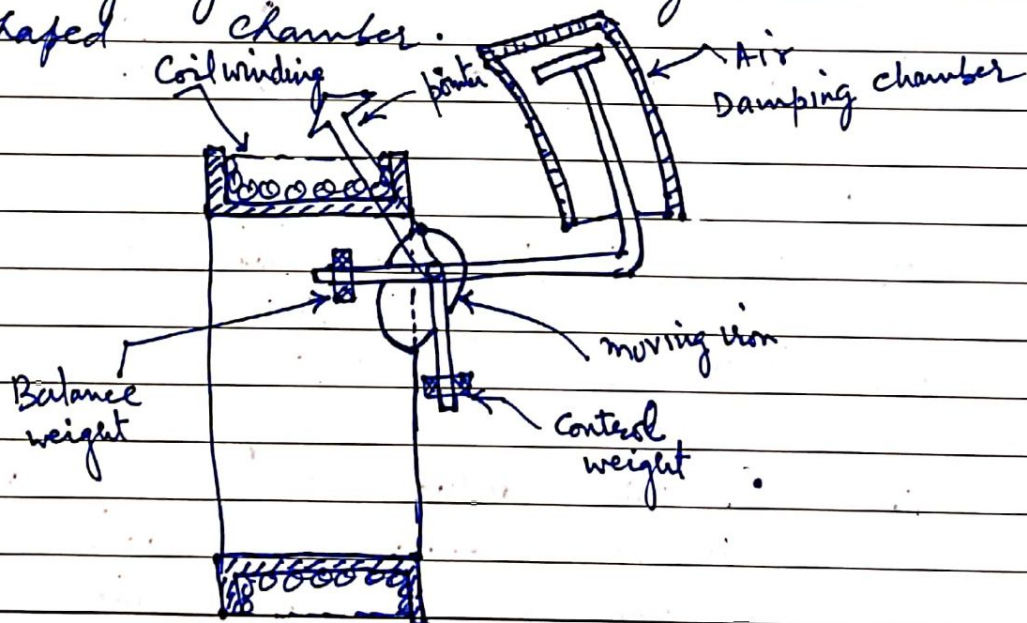 haped chamber.
Coil winding
pointer
Air
Damping chamber
moving iron
Balance
weight
Control
weight